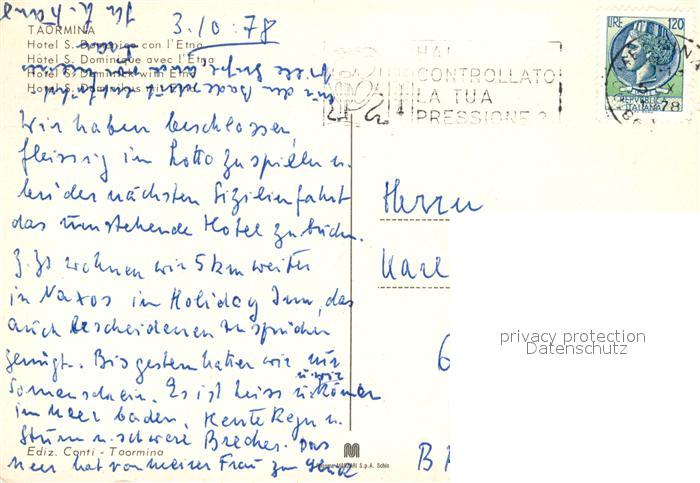 3.10.78
TAORMINA
Hotel S. Domenico con l'Etna
Hotel S. Dominique avec l'Etna
Hotel S. Dominick with Etna
Hotel S. Dominikus mit Etna
HAI
CONTROLLATO
LA TUA
PRESSIONE?
LIRE 120
REPVBBLICA
ITALIANA
Wir haben beschlossen,
fleissig im Lotto zu spielen u.
bei der nächsten Sizilienfahrt
das umstehende Hotel zu buchen.
Z.Zt wohnen wir 5 km weiter
in Naxos im Holiday Inn, das
auch bescheidenen Ansprüchen
genügt. Bis gestern hatten wir nur
Sonnenschein. Es ist heiss u. wir können
im Meer baden. Heute Regen u.
Sturm u. schwere Brecher. Das
Meer hat von meiner Frau zum Glück
Herrn
Karl
6
B
privacy protection
Datenschutz
Ediz. Conti - Taormina
S.p.A. Schio